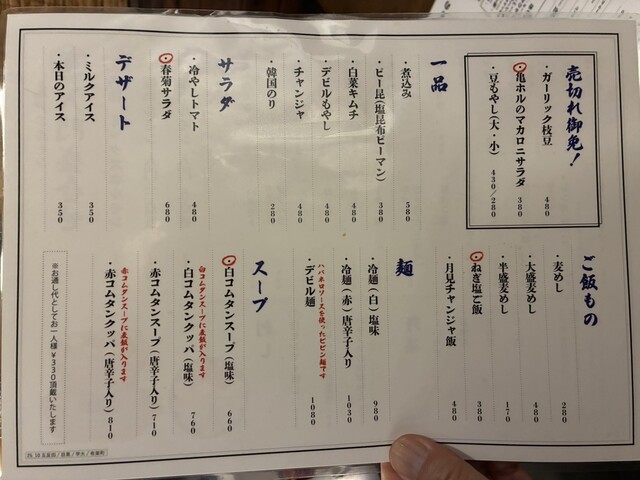 売切れ御免！
・ガーリック枝豆 480
・亀ホルのマカロニサラダ 380
・豆もやし(大・小) 430/280
一品
・煮込み 580
・ピー昆(塩昆布ピーマン) 380
・白菜キムチ 480
・デビルもやし 480
・チャンジャ 480
・韓国のり 280
サラダ
・冷やしトマト 480
・春菊サラダ 680
デザート
・ミルクアイス 350
・本日のアイス 350
ご飯もの
・麦めし 280
・大盛麦めし 480
・半盛麦めし 170
・ねぎ塩ご飯 380
・月見チャンジャ飯 480
麺
・冷麺(白)塩味 980
・冷麺(赤)唐辛子入り 1030
ハバネロソースを使ったビビン麺です
・デビル麺 1080
スープ
・白コムタンスープ(塩味) 660
・白コムタンクッパ(塩味) 760
白コムタンスープに麦飯が入ります
・赤コムタンスープ(唐辛子入り) 710
赤コムタンスープに麦飯が入ります
・赤コムタンクッパ(唐辛子入り) 810
※お通し代としてお一人様¥330頂戴いたします